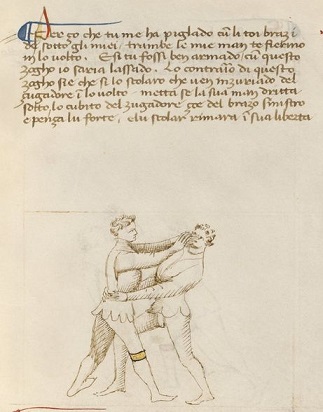 Per ço che tu me ha piglado cum li toi brazi
de sotto gli miei, trambe le mie man te fierino
in lo volto. E si tu fossi ben armado cum questo
zogho io saria lassado. Lo contrario di questo
zogho sie che si lo scolaro che ven inzuriado del
zugadore in lo volto, metta se la sua man dritta
sotto lo cubito del zugadore çoe del brazo sinistro
e penza lu forte, e lu scolar rimara in sua liberta